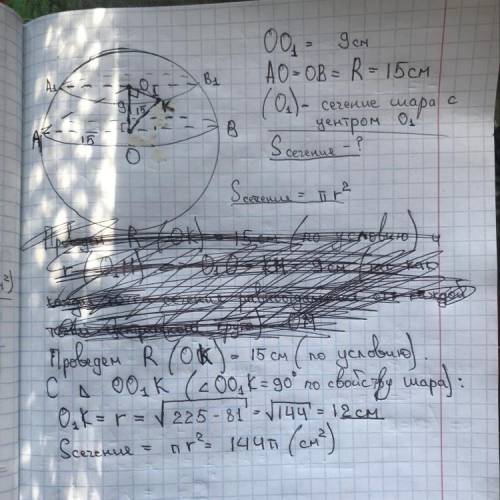 OO₁ = 9см
AO = OB = R = 15см
(O₁) - сечение шара с
центром O₁
Sсечение - ?
Sсечение = πr²
A₁
O₁
B₁
r
9
15
K
A
B
15
O
Проведем R (OK) = 15см (по условию).
С △ OO₁K (∠OO₁K = 90° по свойству шара):
O₁K = r = √225 - 81 = √144 = 12см
Sсечение = πr² = 144π (см²)